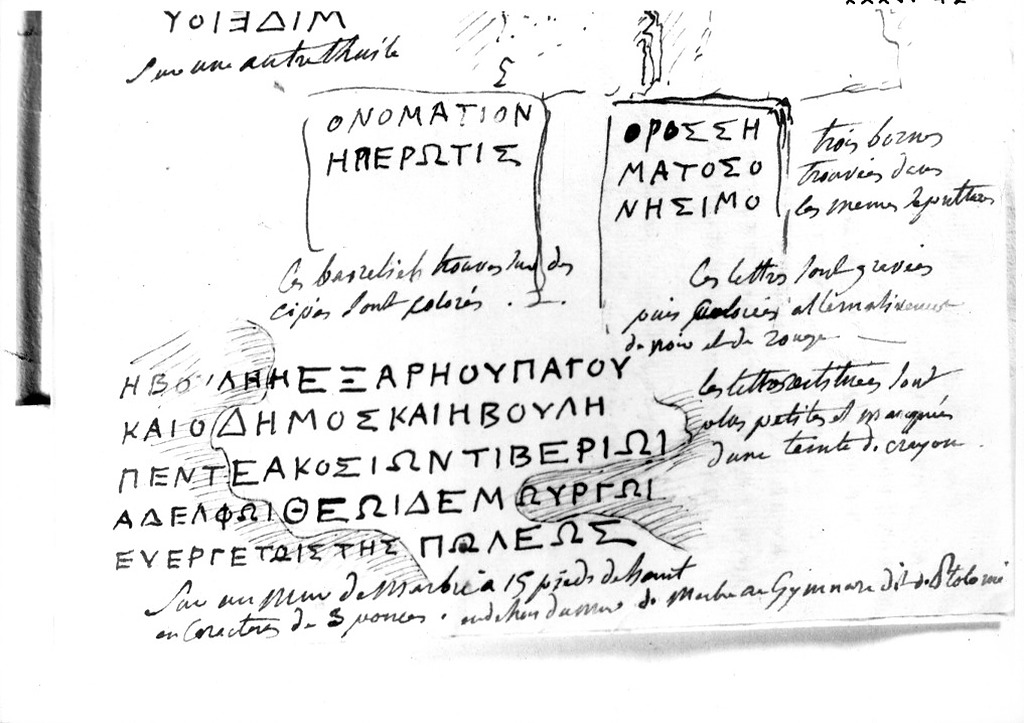 ΥΟΙΞΔΙΜ
Sur une autre thuile
Σ
ΟΝΟΜΑΤΙΟΝ
ΗΠΕΡΩΤΙΣ
ΟΡΟΣΣΗ
ΜΑΤΟΣΟ
ΝΗΣΙΜΟ
trois bornes
trouvées dans
les memes sepultures
Ces basreliefs trouvés sur des
cipes sont colorés
Ces lettres sont gravées
puis colorées alternativement
de noir et de rouge
ΗΒΟΥΛΗΗΕΞΑΡΗΟΥΠΑΓΟΥ
ΚΑΙΟΔΗΜΟΣΚΑΙΗΒΟΥΛΗ
ΠΕΝΤΕΑΚΟΣΙΩΝΤΙΒΕΡΙΩΙ
ΑΔΕΛΦΩΙΘΕΩΙΔΕΜΩΥΡΓΩΙ
ΕΥΕΡΓΕΤΩΙΣΤΗΣ ΠΩΛΕΩΣ
les lettres restituées sont
plus petites et marquées
d'une teinte de crayon.
Sur un mur de Marbre à 15 pieds de haut
en Caracteres de 3 pouces. en dehors du mur de Marbre au Gymnase dit de Ptolomé